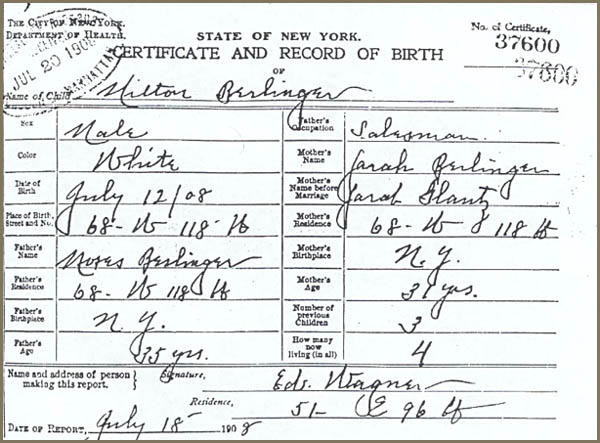 THE CITY OF NEW YORK.
DEPARTMENT OF HEALTH.
STATE OF NEW YORK.
No. of Certificate,
37600
CERTIFICATE AND RECORD OF BIRTH
37600
JUL 20 1908
MANHATTAN
OF
Name of Child Milton Berlinger
Sex Male
Father's Occupation Salesman
Color White
Mother's Name Sarah Berlinger
Date of Birth July 12/08
Mother's Name before Marriage Sarah Glantz
Place of Birth, Street and No. 68 - W 118 St
Mother's Residence 68 - W 118 St
Father's Name Moses Berlinger
Mother's Birthplace N.Y.
Father's Residence 68 - W 118 St
Mother's Age 31 yrs.
Father's Birthplace N.Y.
Number of previous Children 3
Father's Age 35 yrs.
How many now living (in all) 4
Name and address of person making this report. Signature, Eds. Wagner
Residence, 51 - E 96 St
DATE OF REPORT, July 18 1908